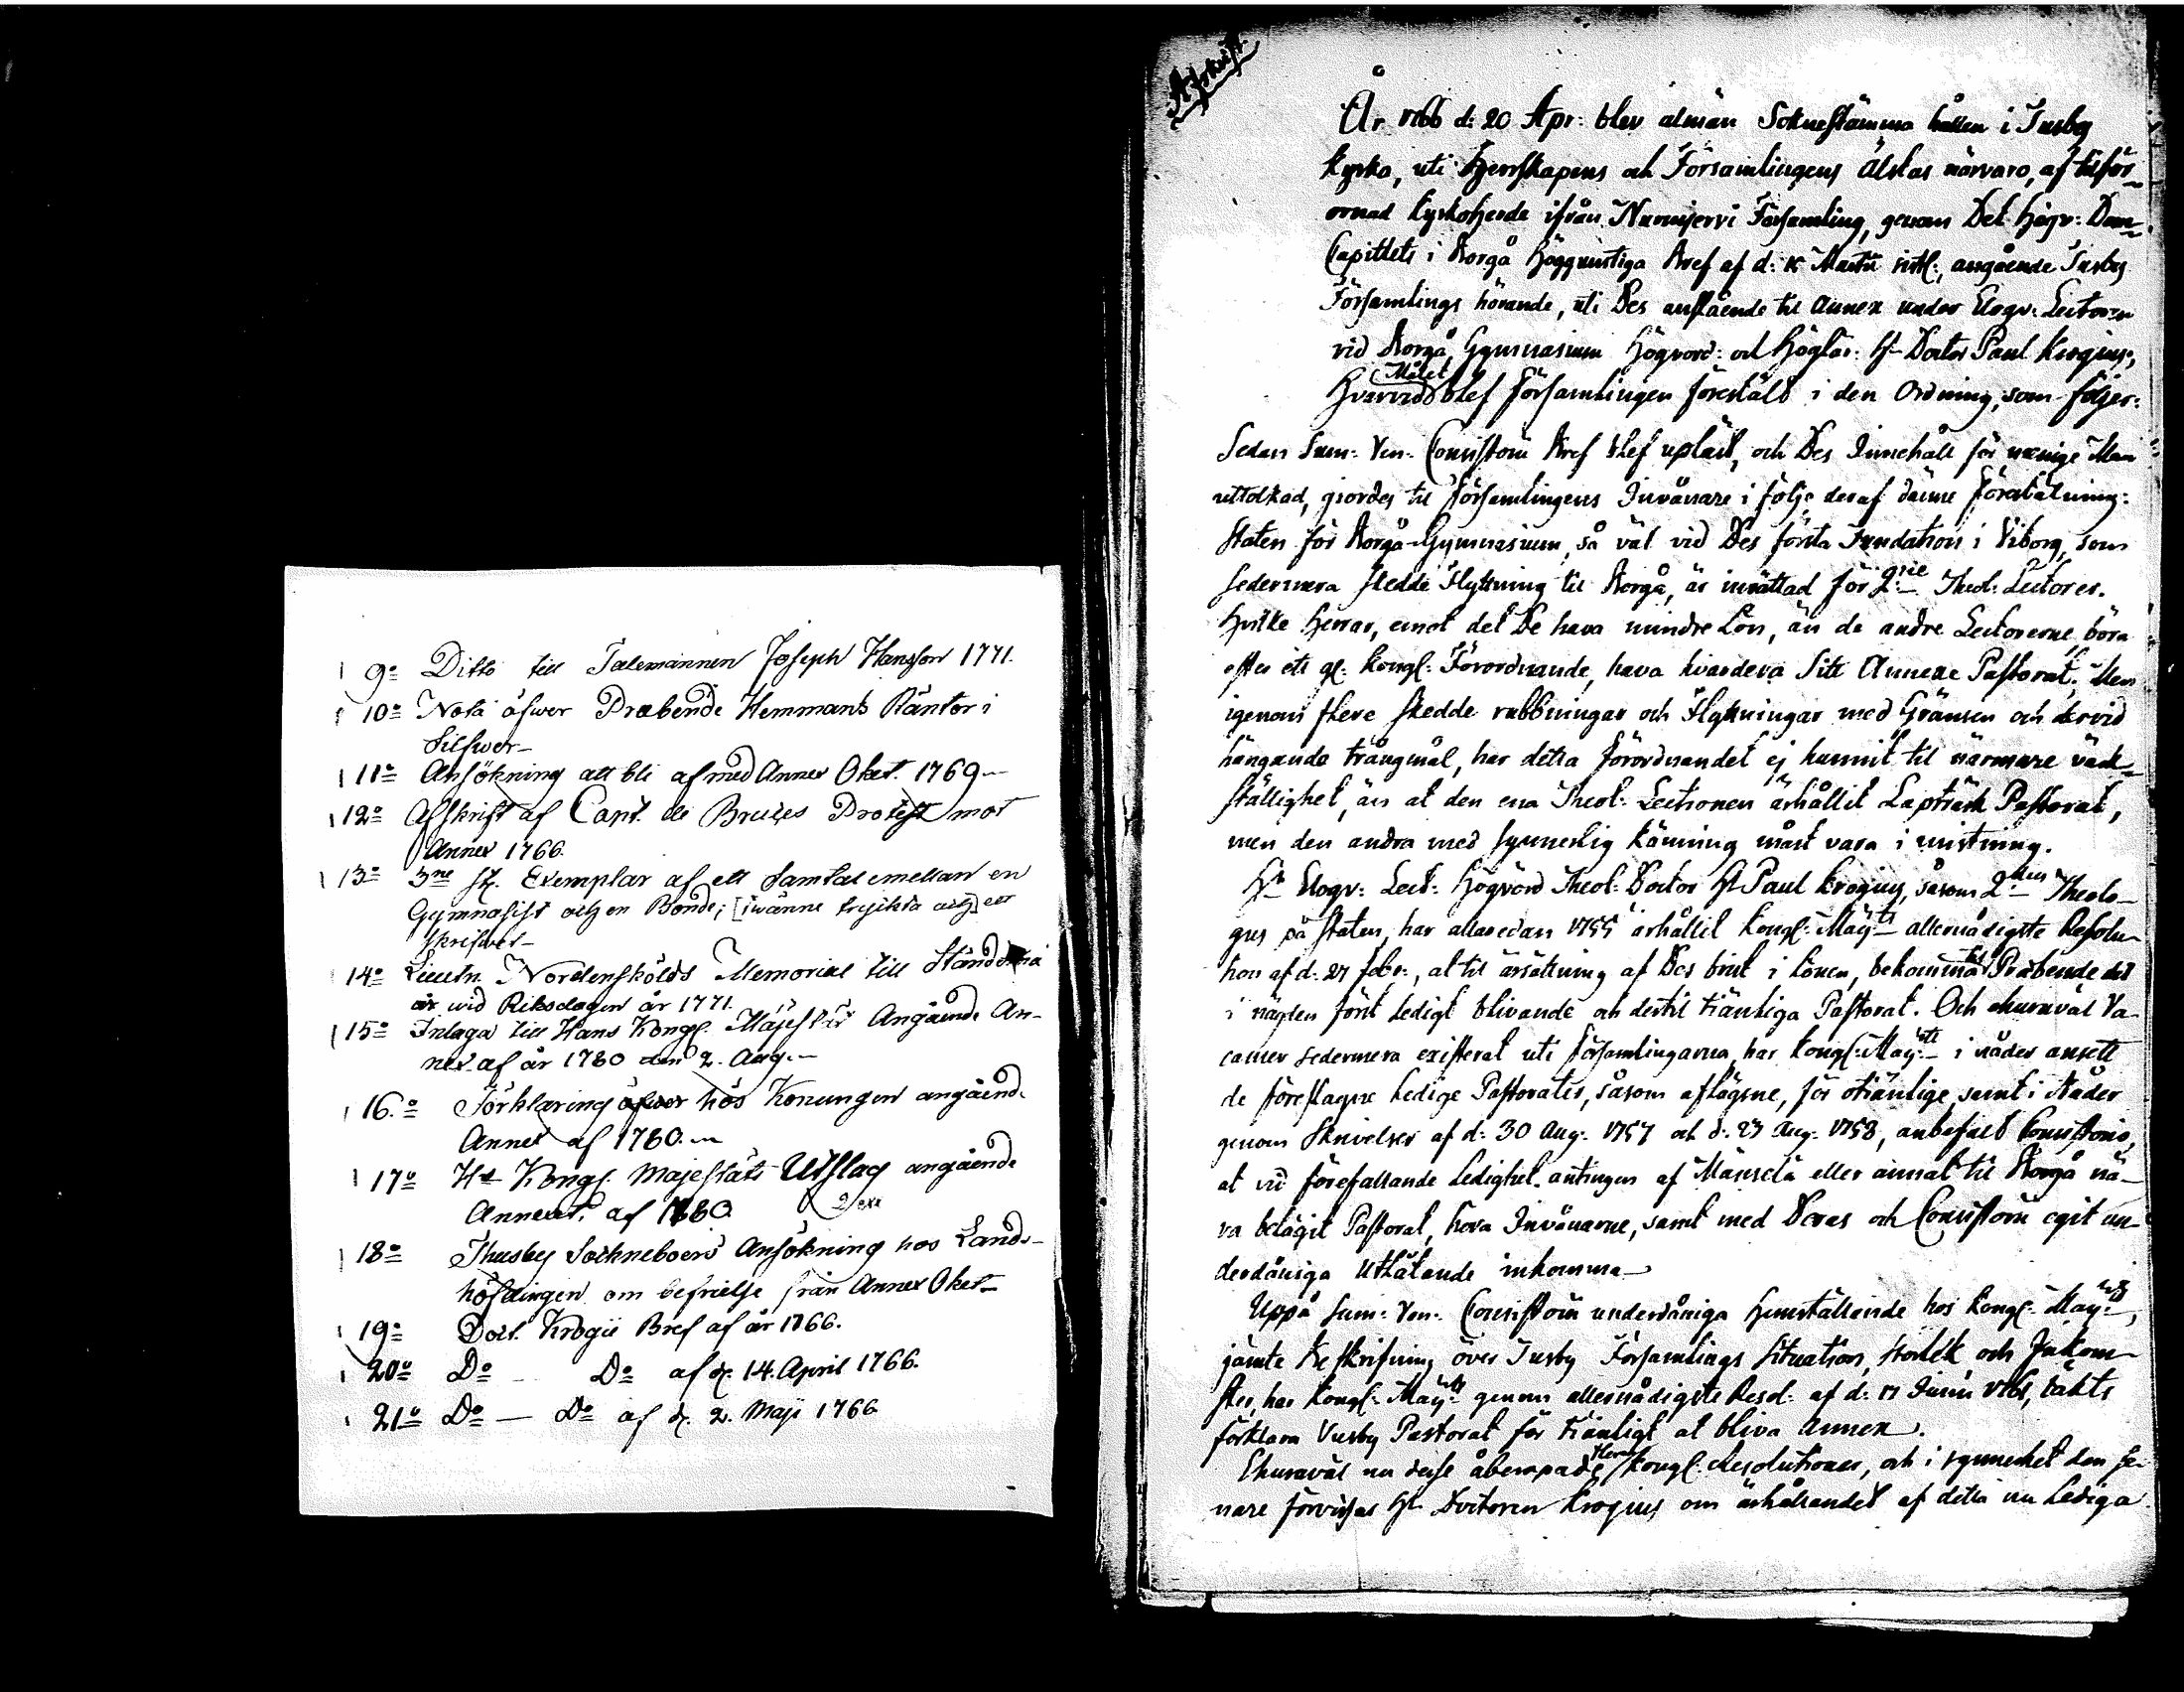 9o Ditto till Talemannen Joseph Hansson 1771.
10o Nota öfwer Præbende Hemmans Räntor i
Silfwer
11o Ansökning att bli af med Annex Oket. 1769
12o Afskrift af Capt. de Bruces Protest mot
Annex 1766.
13o 3ne st. Exemplar af ett Samtal emellan en
Gymnasist och en Bonde; [twänne tryckta och] ett
skrifwet
14o Lieutn. Nordenskölds Memorial till
wid Riksdagen år 1771.
15o Inlaga till Hans Kongl. Majestät Angående An-
nex af år 1780 den 2. Aug.
16.o Förklaring öfwer hos Konungen angående
Annex af 1780.
17o Hs Kongl. Majestäts Utslag angående
Annexet. af 1780. 2 ex
18o Thusby Sochneboers Ansökning hos Lands-
höfdingen om befrielse från Annex Oket
19o Doct. Krogii Bref af år 1766.
20o Do Do af d. 14. April 1766.
21o Do — Do af d. 2. Maji 1766
Afskrift.
År 1766 d: 20 Apr: blev alman Soknestämma hållen i Tusby
kyrko, uti Herrskapens och Församlingens Älstas närvaro, af tilför-
ornad Kyrkoherde ifrån Nurmijervi Församling, genom Det Högv: Dom-
Capittlets i Borgå Höggunstiga Bref af d: Martii sistl:, angående Tusby
Församlings hörande, uti Des anslående til Annex under Elogv: Lectoren
vid Borgå Gymnasium Högvord: och Höglär: Hr Doctor Paul Krogius,
Målet
Hvarvid blef Församlingen förestäld i den Ordning, som följer:
Sedan Sum: Ven: Consistorii Bref blef upläst, och Des Innehåll för menige Man
uttolkad, giordes til Församlingens Invånare i följe deraf dänne Förestälning:
Staten för Borgå-Gymnasium, så väl vid Des första Fundation i Viborg, som
sedermera skedde Flyttning til Borgå, är inrättad för 2:ne Theol: Lectores.
Hvilke Herrar, emot det De hava mindre Lön, än de andre Lectorerne, böra
efter ett gl: Kongl: Förordnande, hava hvardera Sitt Annexe Pastorat. Men
igenom flere skedde rubbningar och Flyttningar med Gränsen och dervid
hängande trångmål, har detta Förordnandet ej hunnit til närmare värk-
ställighet, än at den ena Theol: Lectionen ärhållit Lapträsk Pastorat,
men den andra med synnerlig känning måst vara i mistning.
Hr Elogv: Lect: Högvörd Theol: Doctor Hr Paul Krogius, såsom 2:dus Theolo-
gus på Staten, har allaredan 1755 ärhållit Kongl: Maj:ts allernådigste Resolu-
tion af d: 27 Febr:, at til ärsättning af Des brist i Lönen, bekomma til Præbende det
i nägden först Ledigt blivande och dertil tiänliga Pastorat. Och ehuruväl Va-
cancer sedermera existerat uti Församlingarna, har Kongl: Maj:tt i nåder ansett
de föreslagne Ledige Pastorater, såsom aflägsne, för otiänlige, samt i Nåder
genom Skrivelser af d: 30 Aug: 1757 och d: 23 Aug: 1758, anbefalt Consistorio,
at vid förefallande Ledighet antingen af Mänsälä eller annat til Borgå nä-
ra belägit Pastorat, höra Invånarne, samt med Deras och Consistorii egit un-
derdåniga Utlåtande inkomma
Uppå Sum: Ven: Consistorii underdåniga Hemställande hos Kongl: Maj:tt,
jämte Beskrifning över Tusby Församlings Situation, storlek och Inkom-
ster, har Kongl: Maj:tt genom allernådigste Resol: af d: 17 Junii 1761, täkts
förklara Tusby Pastorat för tiänligt at bliva Annex.
Flera
Ehuruväl nu desse åberopade Kongl: Resolutioner, och i synnerhet den se-
nare förvissar Hr Doctoren Krogius om ärhållandet af detta nu Lediga